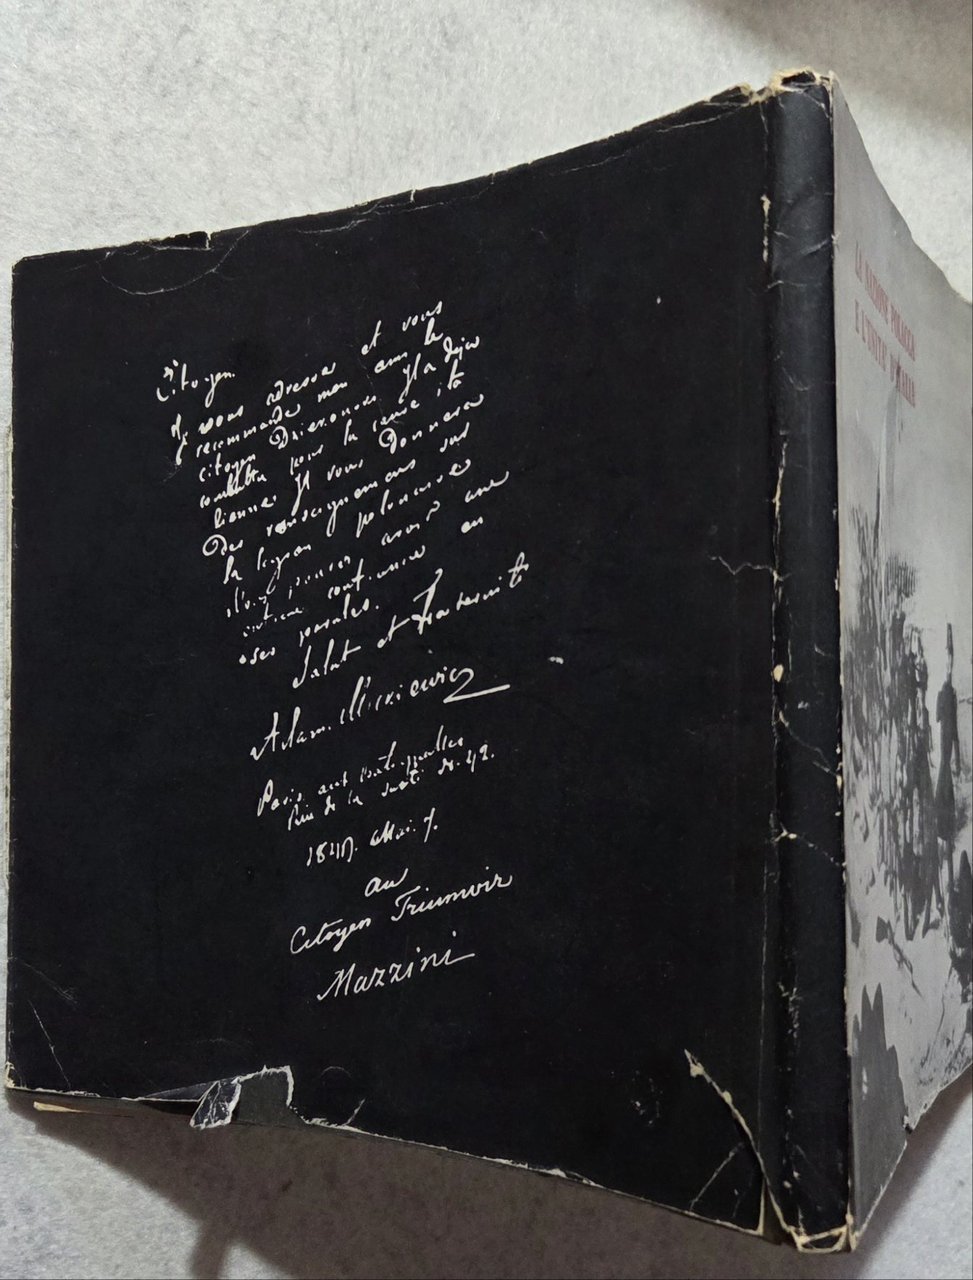 Citoyen
Je vous adresse et vous
recommande mon ami le
citoyen Dzieronski il a deja
combattu pour la cause ita
lienne. Il vous donnera
Des renseignemens sur
la legion polonaise
Vous pouvez avoir une
entiere confiance en
ses paroles.
Salut et Fraternité
Adam Mickiewicz
Paris aux Batignolles
Rue de la santé No 42.
1849. Mai. 7.
au
Citoyen Triumvir
Mazzini
LA NAZIONE POLACCA
E L'UNITA' D'ITALIA